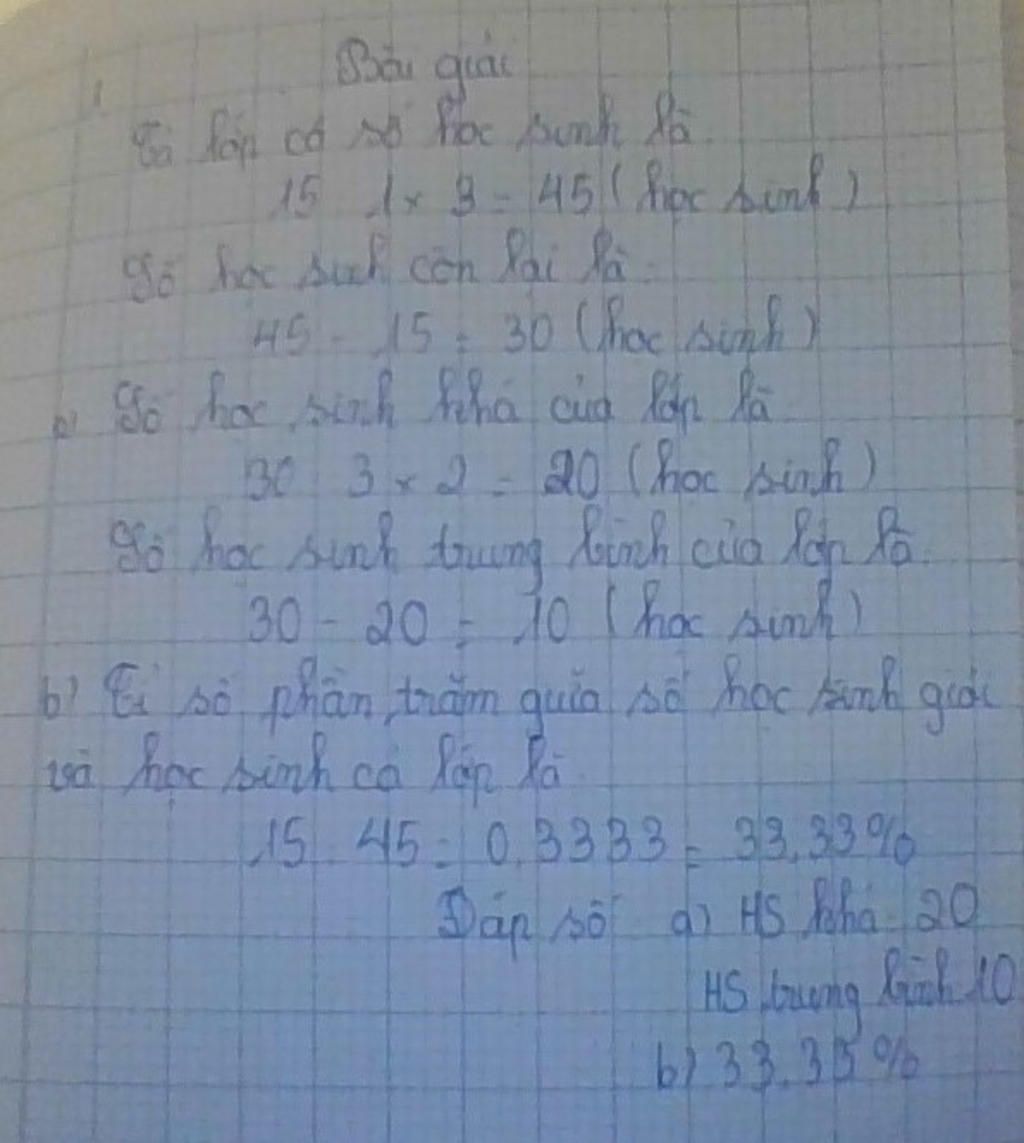 Bài giải
Cả lớp có số học sinh là
15 : 1 x 3 = 45 (học sinh)
Số học sinh còn lại là
45 - 15 = 30 (học sinh)
a) Số học sinh khá của lớp là
30 : 3 x 2 = 20 (học sinh)
Số học sinh trung bình của lớp là
30 - 20 = 10 (học sinh)
b) Tỉ số phần trăm giữa số học sinh giỏi
và học sinh cả lớp là
15 : 45 = 0,3333 = 33,33%
Đáp số a) HS khá 20
HS trung bình 10
b) 33,33%